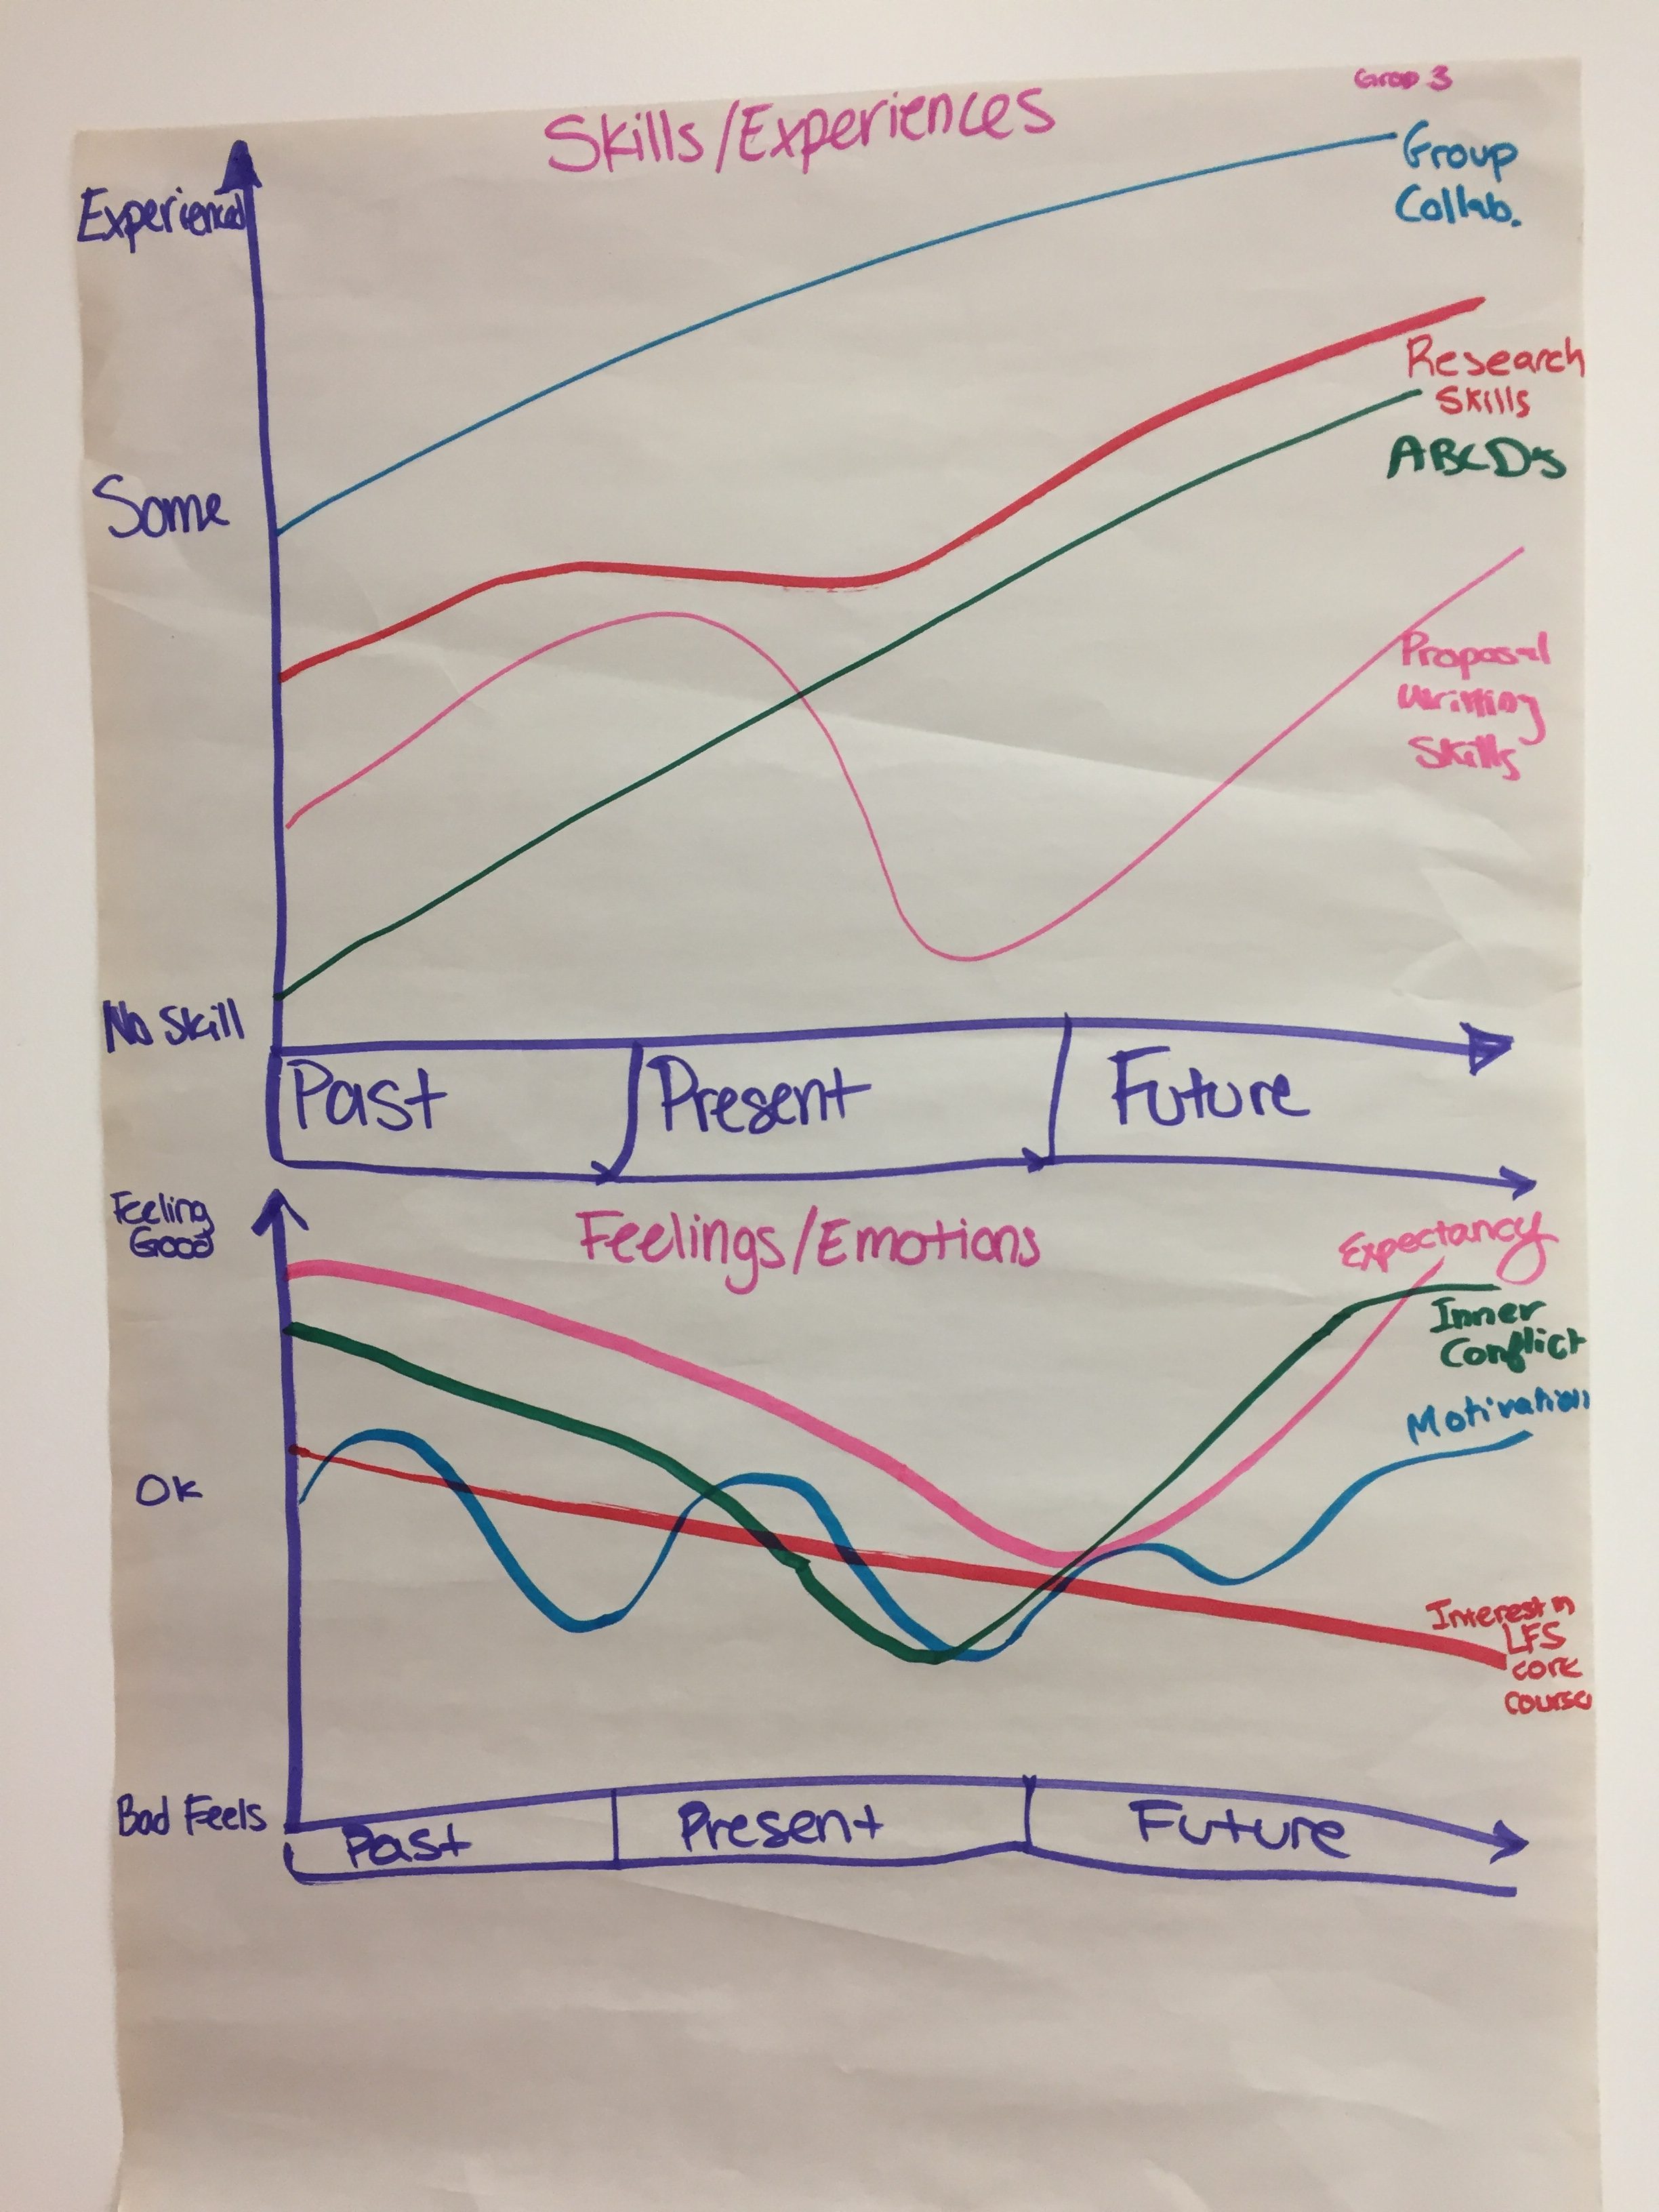 Group 3
Skills/Experiences
Experienced
Group
Collab.
Research
Skills
Some
ABCD's
Proposal
Writing
Skills
No Skill
Past
Present
Future
Feeling
Good
Feelings/Emotions
Expectancy
Inner
Conflict
Motivation
Ok
Interest in
LFS
core
course
Bad Feels
Past
Present
Future